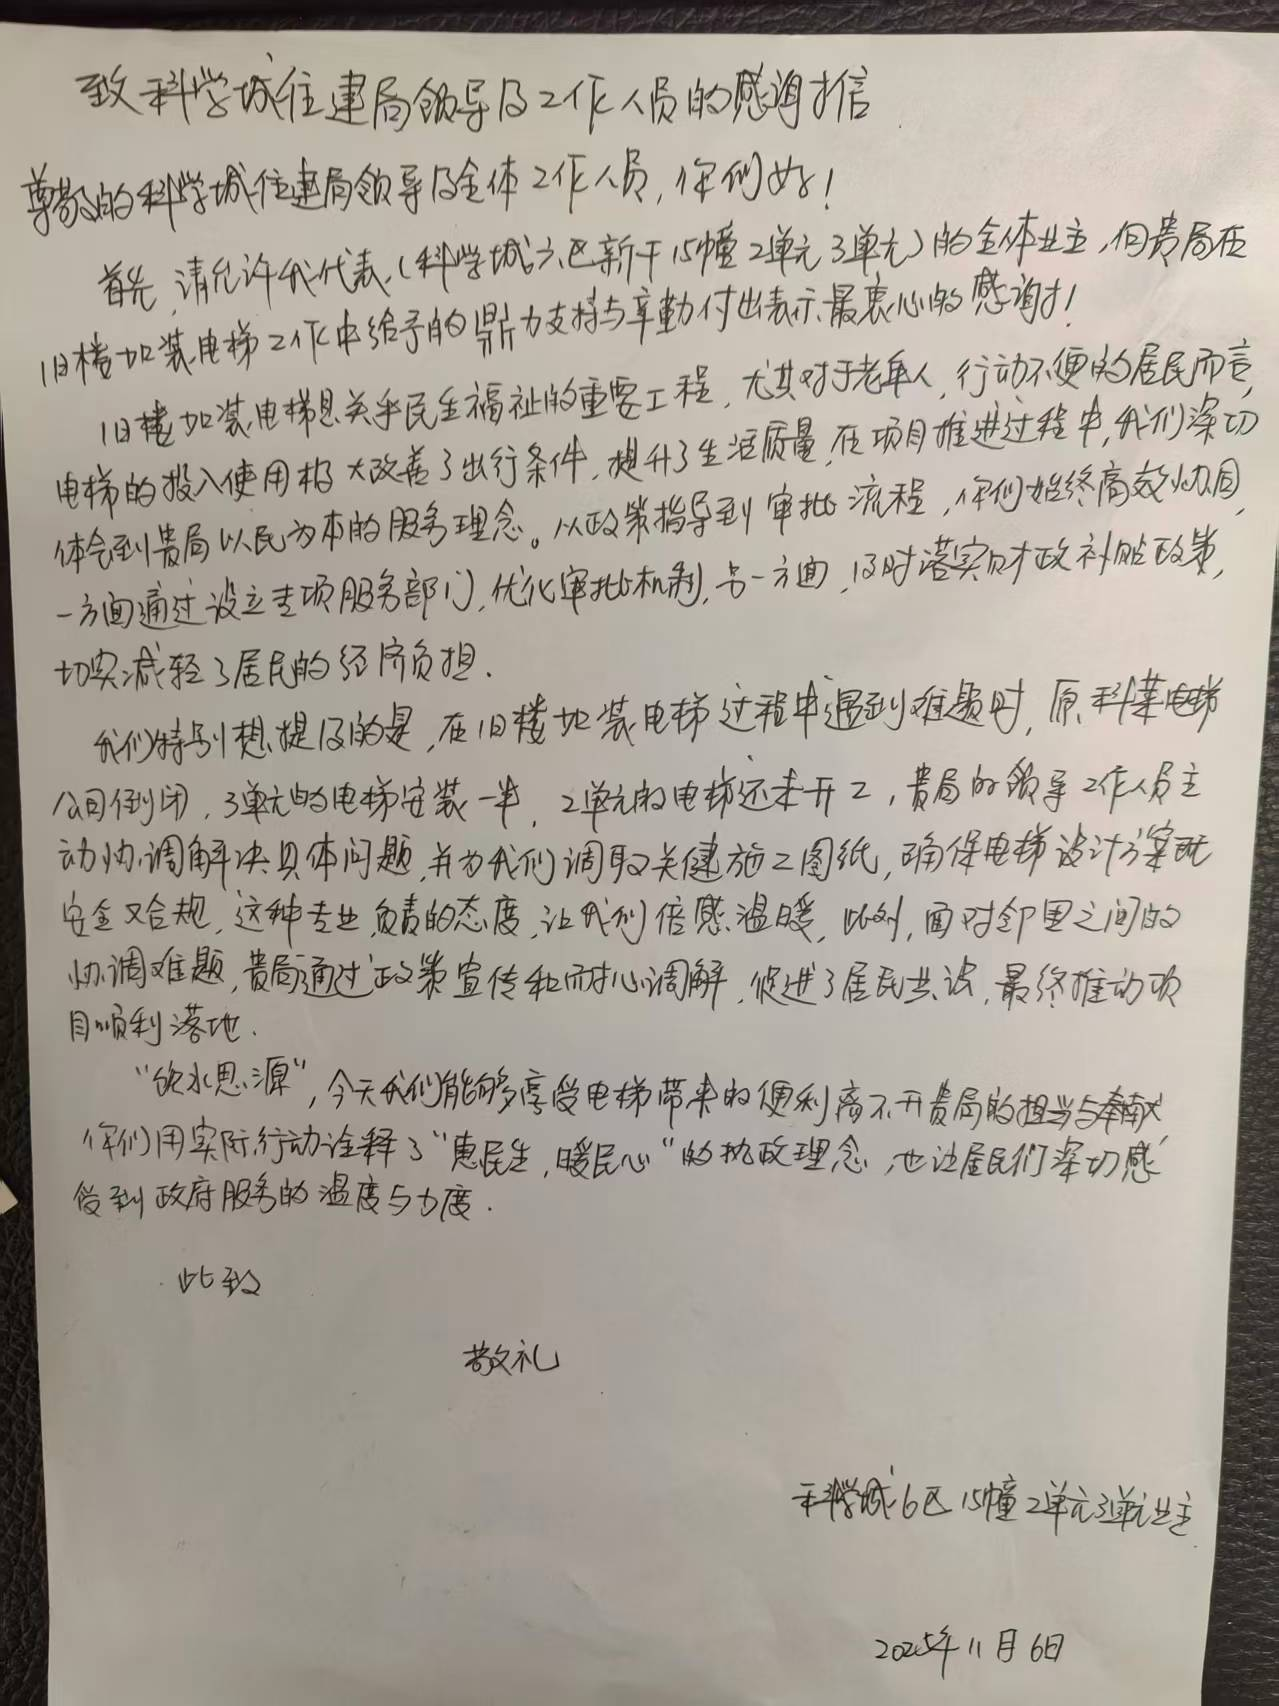 致科学城住建局领导及工作人员的感谢信
尊敬的科学城住建局领导及全体工作人员,你们好!
首先,请允许我代表(科学城六区新干15幢2单元3单元)的全体业主,向贵局在
旧楼加装电梯工作中给予的鼎力支持与辛勤付出表示最衷心的感谢!
旧楼加装电梯是关乎民生福祉的重要工程,尤其对于老年人,行动不便的居民而言,
电梯的投入使用极大改善了出行条件,提升了生活质量,在项目推进过程中,我们深切
体会到贵局以民为本的服务理念。从政策指导到审批流程,你们始终高效协同,
一方面通过设立专项服务部门,优化审批机制,另一方面,及时落实财政补贴政策,
切实减轻了居民的经济负担.
我们特别想提及的是,在旧楼加装电梯过程中遇到难题时,原科莱电梯
公司倒闭,3单元的电梯安装一半,2单元的电梯还未开工,贵局的领导工作人员主
动协调解决具体问题,并为我们调取关健施工图纸,确保电梯设计方案既
安全又合规,这种专业负责的态度,让我们倍感温暖,此外,面对邻里之间的
协调难题,贵局通过政策宣传和耐心调解,促进了居民共识,最终推动项
目顺利落地.
“饮水思源”,今天我们能够享受电梯带来的便利离不开贵局的担当与奉献,
你们用实际行动诠释了“惠民生,暖民心”的执政理念,也让居民们深切感
受到政府服务的温度与力度.
此致
敬礼
科学城6区15幢2单元3单元业主
2025年11月6日